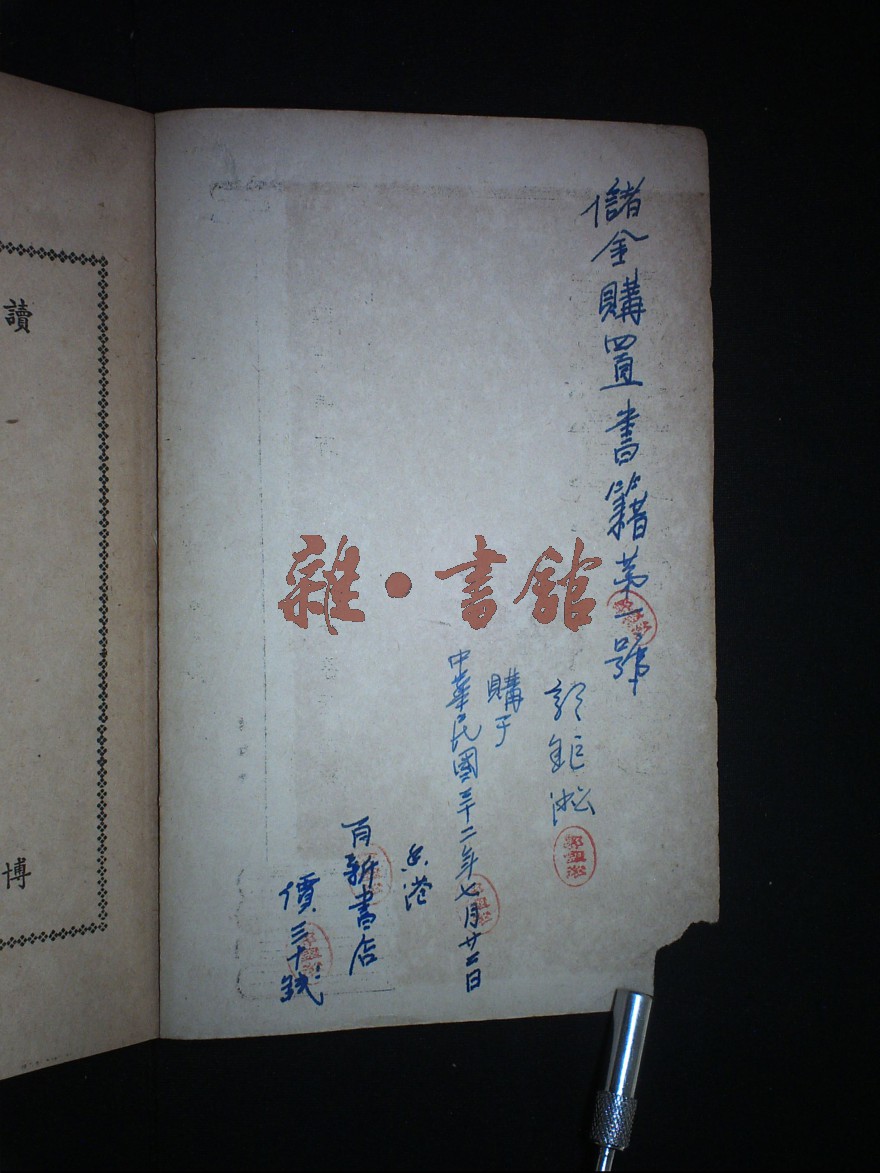 儲金購置書籍第一號
郭鉅淞
購于
中華民國三十二年七月廿二日
香港
百新書店
價三十錢
雜·書館
讀
博